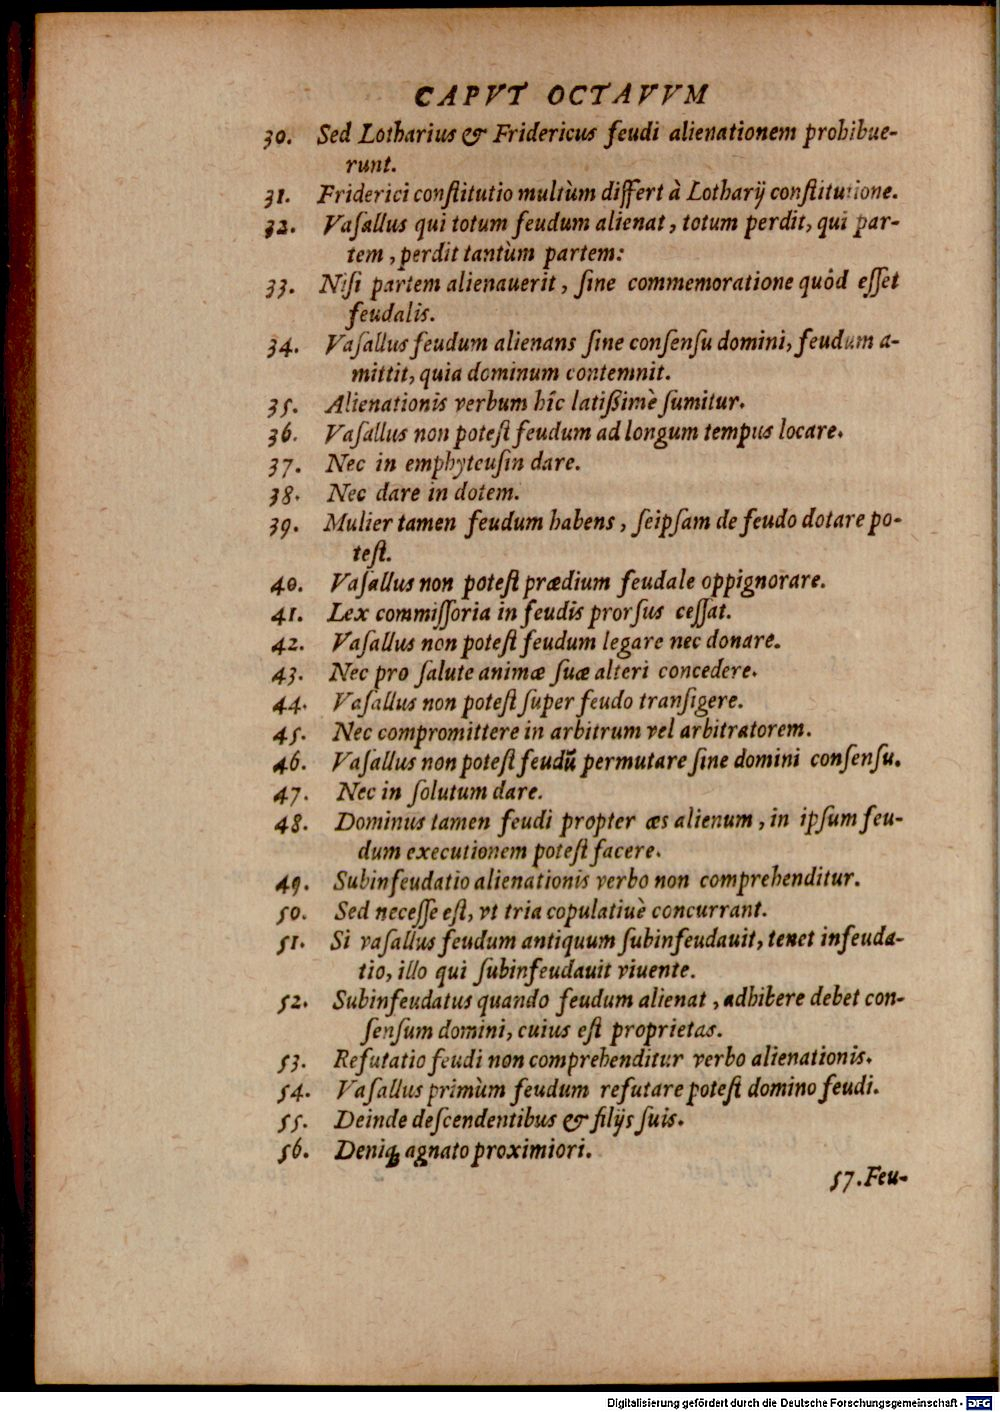 CAPVT OCTAVVM
30. Sed Lotharius & Fridericus feudi alienationem prohibue-
runt.
31. Friderici conſtitutio multùm differt à Lotharij conſtitutione.
32. Vaſallus qui totum feudum alienat, totum perdit, qui par-
tem, perdit tantùm partem:
33. Niſi partem alienauerit, ſine commemoratione quòd eſſet
feudalis.
34. Vaſallus feudum alienans ſine conſenſu domini, feudum a-
mittit, quia dominum contemnit.
35. Alienationis verbum hîc latißimè ſumitur.
36. Vaſallus non poteſt feudum ad longum tempus locare.
37. Nec in emphyteuſin dare.
38. Nec dare in dotem.
39. Mulier tamen feudum habens, ſeipſam de feudo dotare po-
teſt.
40. Vaſallus non poteſt prædium feudale oppignorare.
41. Lex commiſſoria in feudis prorſus ceſſat.
42. Vaſallus non poteſt feudum legare nec donare.
43. Nec pro ſalute animæ ſuæ alteri concedere.
44. Vaſallus non poteſt ſuper feudo tranſigere.
45. Nec compromittere in arbitrum vel arbitratorem.
46. Vaſallus non poteſt feudū permutare ſine domini conſenſu.
47. Nec in ſolutum dare.
48. Dominus tamen feudi propter æs alienum, in ipſum feu-
dum executionem poteſt facere.
49. Subinfeudatio alienationis verbo non comprehenditur.
50. Sed neceſſe eſt, vt tria copulatiuè concurrant.
51. Si vaſallus feudum antiquum ſubinfeudauit, tenet infeuda-
tio, illo qui ſubinfeudauit viuente.
52. Subinfeudatus quando feudum alienat, adhibere debet con-
ſenſum domini, cuius eſt proprietas.
53. Refutatio feudi non comprehenditur verbo alienationis.
54. Vaſallus primùm feudum refutare poteſt domino feudi.
55. Deinde deſcendentibus & filijs ſuis.
56. Deniq; agnato proximiori.
57. Feu-
Digitalisierung gefördert durch die Deutsche Forschungsgemeinschaft - DFG